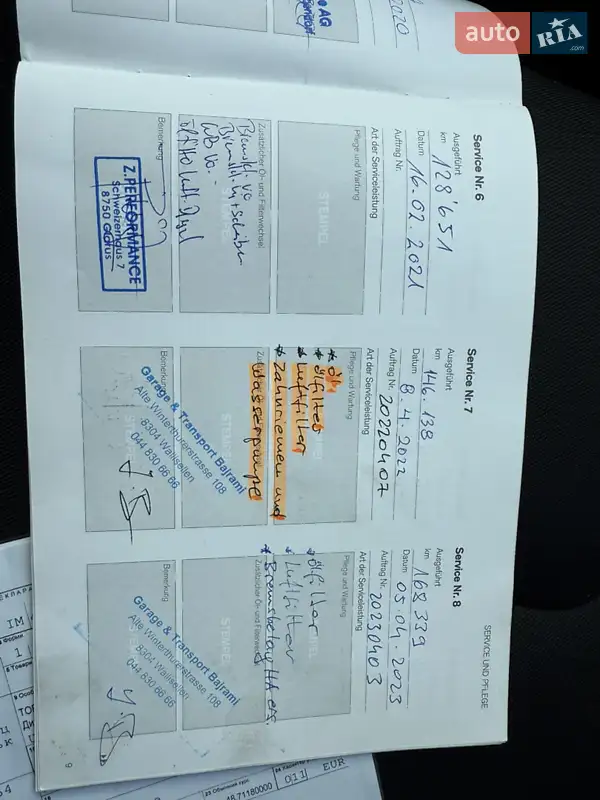 auto
RIA
.com
AG
2020
SERVICE UND PFLEGE
Service Nr. 6
Ausgeführt
km 128'651
Datum 16.02.2021
Auftrag Nr.
Art der Serviceleistung
Pflege und Wartung
STEMPEL
Zusätzlicher Öl- und Filterwechsel
Bemerkung
Z.PERFORMANCE
Schweizerhaus 7
8750 Glarus
Service Nr. 7
Ausgeführt
km 146.138
Datum 8.4.2022
Auftrag Nr. 20220407
Art der Serviceleistung
Pflege und Wartung
* Öl
* ölfilter
* Luftfilter
* Zahnriemen und
Wasserpumpe
STEMPEL
Bemerkung
Garage & Transport Bajrami
Alte Winterthurerstrasse 108
8304 Wallisellen
044 830 66 66
Service Nr. 8
Ausgeführt
km 168.339
Datum 05.04.2023
Auftrag Nr. 20230403
Art der Serviceleistung
Pflege und Wartung
* ölfilter
* Luftfilter
* Bremsbelag HA ers.
Zusätzlicher Öl- und Filterwechsel
STEMPEL
Bemerkung
Garage & Transport Bajrami
Alte Winterthurerstrasse 108
8304 Wallisellen
044 830 66 66
9
IM
1
EUR
011
48,71180000